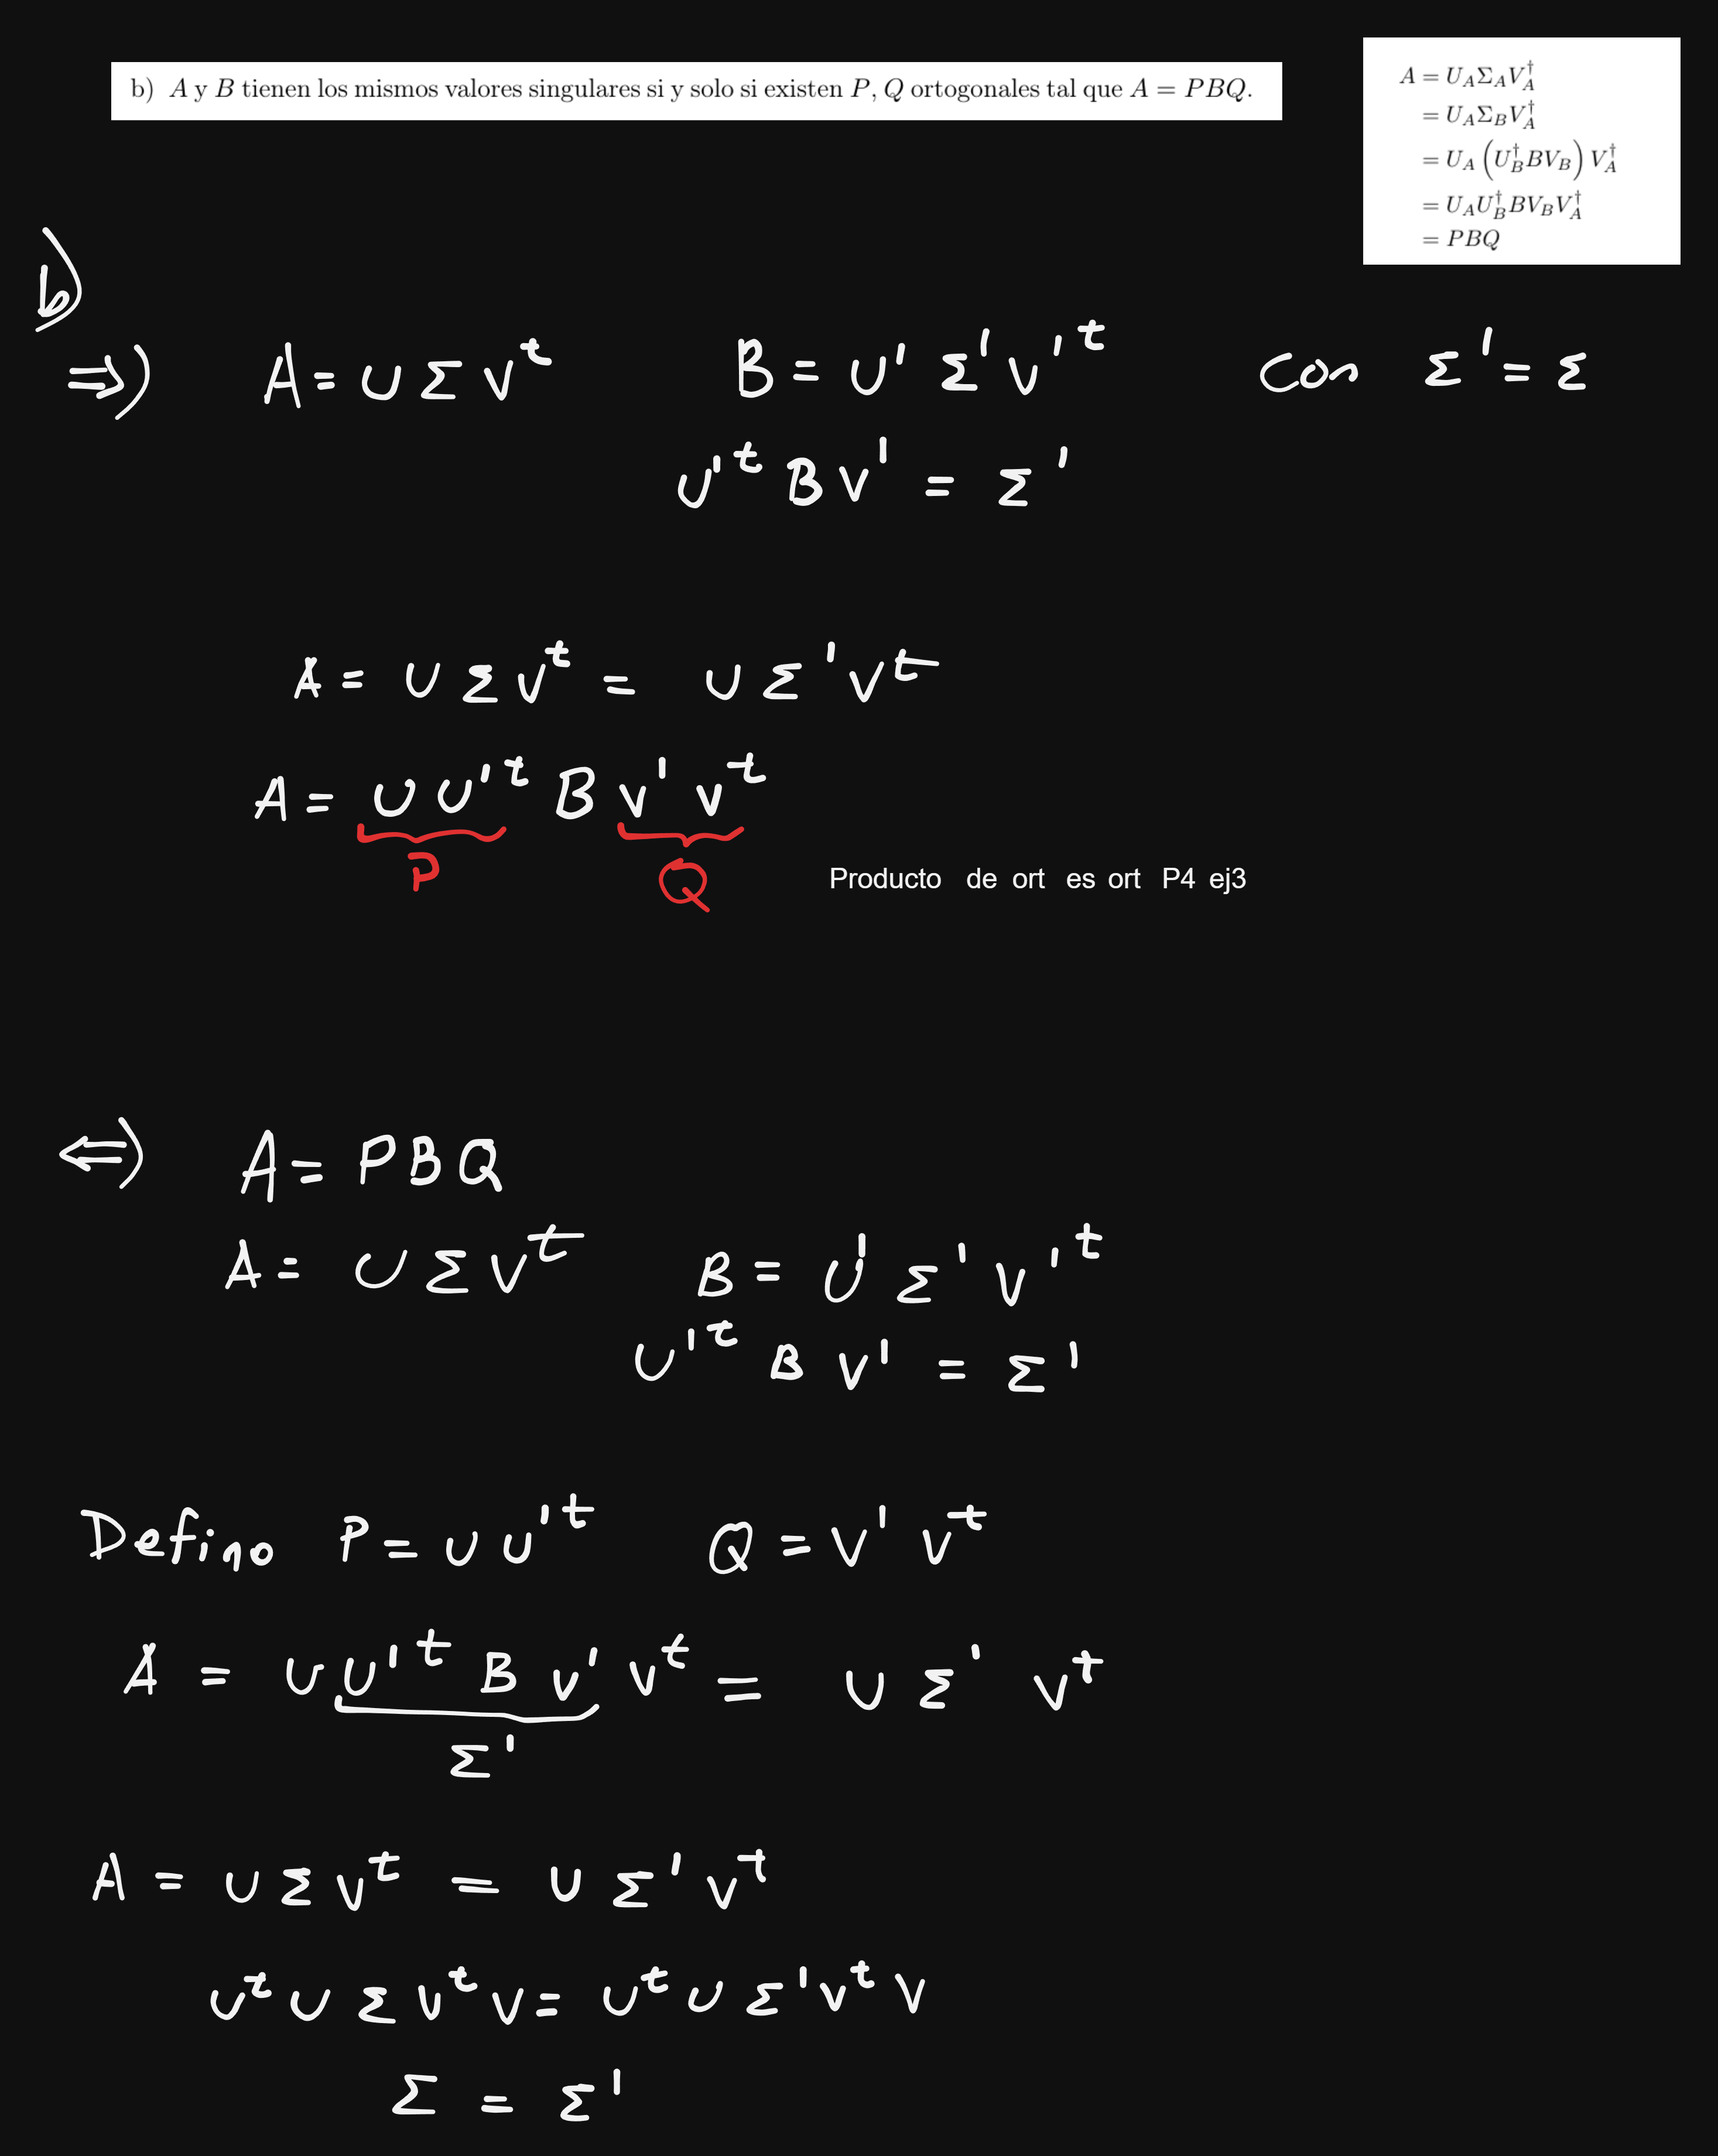 b) A y B tienen los mismos valores singulares si y solo si existen P, Q ortogonales tal que A = PBQ.
A = U_A Σ_A V_A^†
= U_A Σ_B V_A^†
= U_A (U_B^† B V_B) V_A^†
= U_A U_B^† B V_B V_A^†
= PBQ
b)
⇒) A = U Σ V^t B = U' Σ' V'^t con Σ' = Σ
U'^t B V' = Σ'
A = U Σ V^t = U Σ' V^t
A = U U'^t B V' V^t
P Q
Producto de ort es ort P4 ej3
⇐) A = PBQ
A = U Σ V^t B = U' Σ' V'^t
U'^t B V' = Σ'
Defino P = U U'^t Q = V' V^t
A = U U'^t B V' V^t = U Σ' V^t
Σ'
A = U Σ V^t = U Σ' V^t
U^t U Σ V^t V = U^t U Σ' V^t V
Σ = Σ'